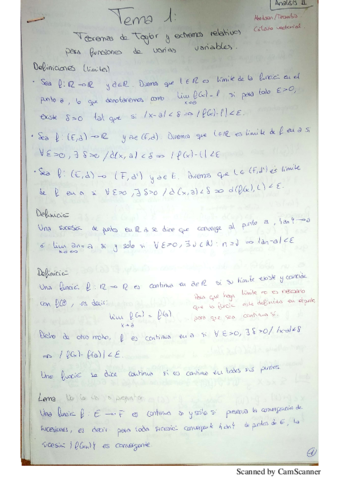 Análisis II
Tema 1:
Teorema de Taylor y extremos relativos
para funciones de varias variables.
Marsden / Tromba
Cálculo vectorial
Definiciones (límites)
· Sea f: R → R y a∈R. Diremos que l∈R es límite de la función en el
punto a, lo que denotaremos como lim f(x) = l si para todo ε>0,
existe δ>0 tal que si |x-a|<δ ⇒ |f(x)-l|<ε.
· Sea f: (E,d) → R y a∈(E,d). Diremos que l∈R es límite de f en a si
∀ε>0, ∃δ>0 / d(x,a)<δ ⇒ |f(x)-l|<ε
· Sea f: (E,d) → (F,d') y a∈E. Diremos que l∈(F,d') es límite
de f en a si ∀ε>0, ∃δ>0 / d(x,a)<δ ⇒ d'(f(x),l)<ε.
Definición
Una sucesión de puntos en R se dice que converge al punto a,
si y solo si ∀ε>0, ∃ n>
Definición
Una función f: R → R es continua en a∈R si su límite existe y coincide
con f(a), es decir:
lim f(x) = f(a)
x→a
Para que haya límite no es necesario
que la función esté definida en el punto
para que sea continua sí.
Dicho de otro modo: f es continua en a si ∀ε>0, ∃δ>0 / |x-a|<δ
⇒ |f(x)-f(a)|<ε
Una función se dice continua si es continua en todos sus puntos.
Lema
Una función f: E → F es continua si y solo si preserva la convergencia de
sucesiones, es decir para toda sucesión convergente de puntos de E, la
sucesión es convergente.
Scanned by CamScanner